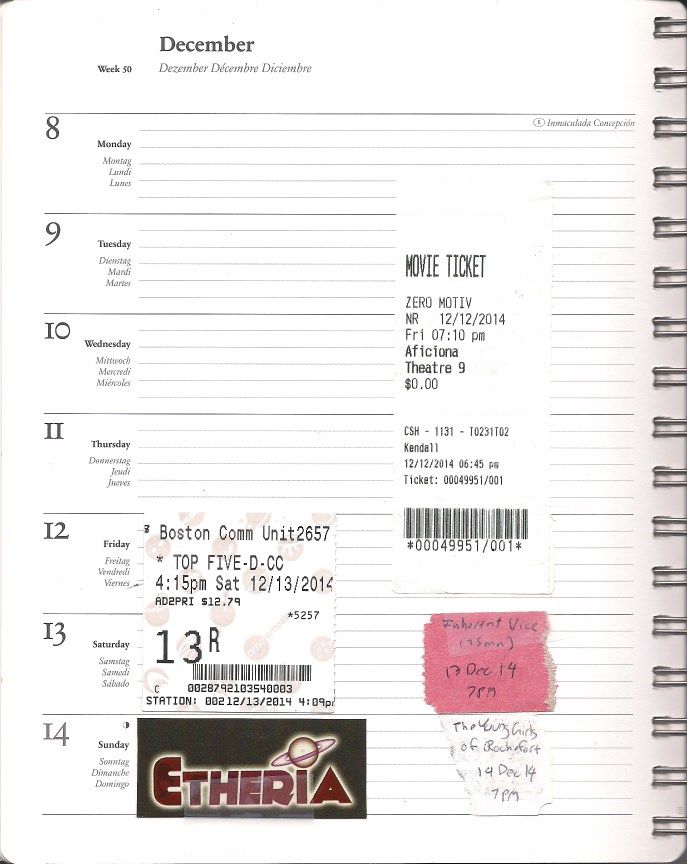 December
Week 50 Dezember Décembre Diciembre
8
Monday
Montag
Lundi
Lunes
E Inmaculada Concepción
9
Tuesday
Dienstag
Mardi
Martes
10
Wednesday
Mittwoch
Mercredi
Miércoles
11
Thursday
Donnerstag
Jeudi
Jueves
12
Friday
Freitag
Vendredi
Viernes
13
Saturday
Samstag
Samedi
Sábado
14
Sunday
Sonntag
Dimanche
Domingo
MOVIE TICKET
ZERO MOTIV
NR 12/12/2014
Fri 07:10 pm
Aficiona
Theatre 9
$0.00
CSH - 1131 - T0231T02
Kendall
12/12/2014 06:45 pm
Ticket: 00049951/001
*00049951/001*
Boston Comm Unit2657
* TOP FIVE-D-CC
4:15pm Sat 12/13/2014
AD2PRI $12.79
*5257
13R
C 0028792103540003
STATION: 00212/13/2014 4:09pm
Inherent Vice
(35mm)
13 Dec 14
7PM
ETHERIA
The Young Girls
of Rochefort
14 Dec 14
7PM